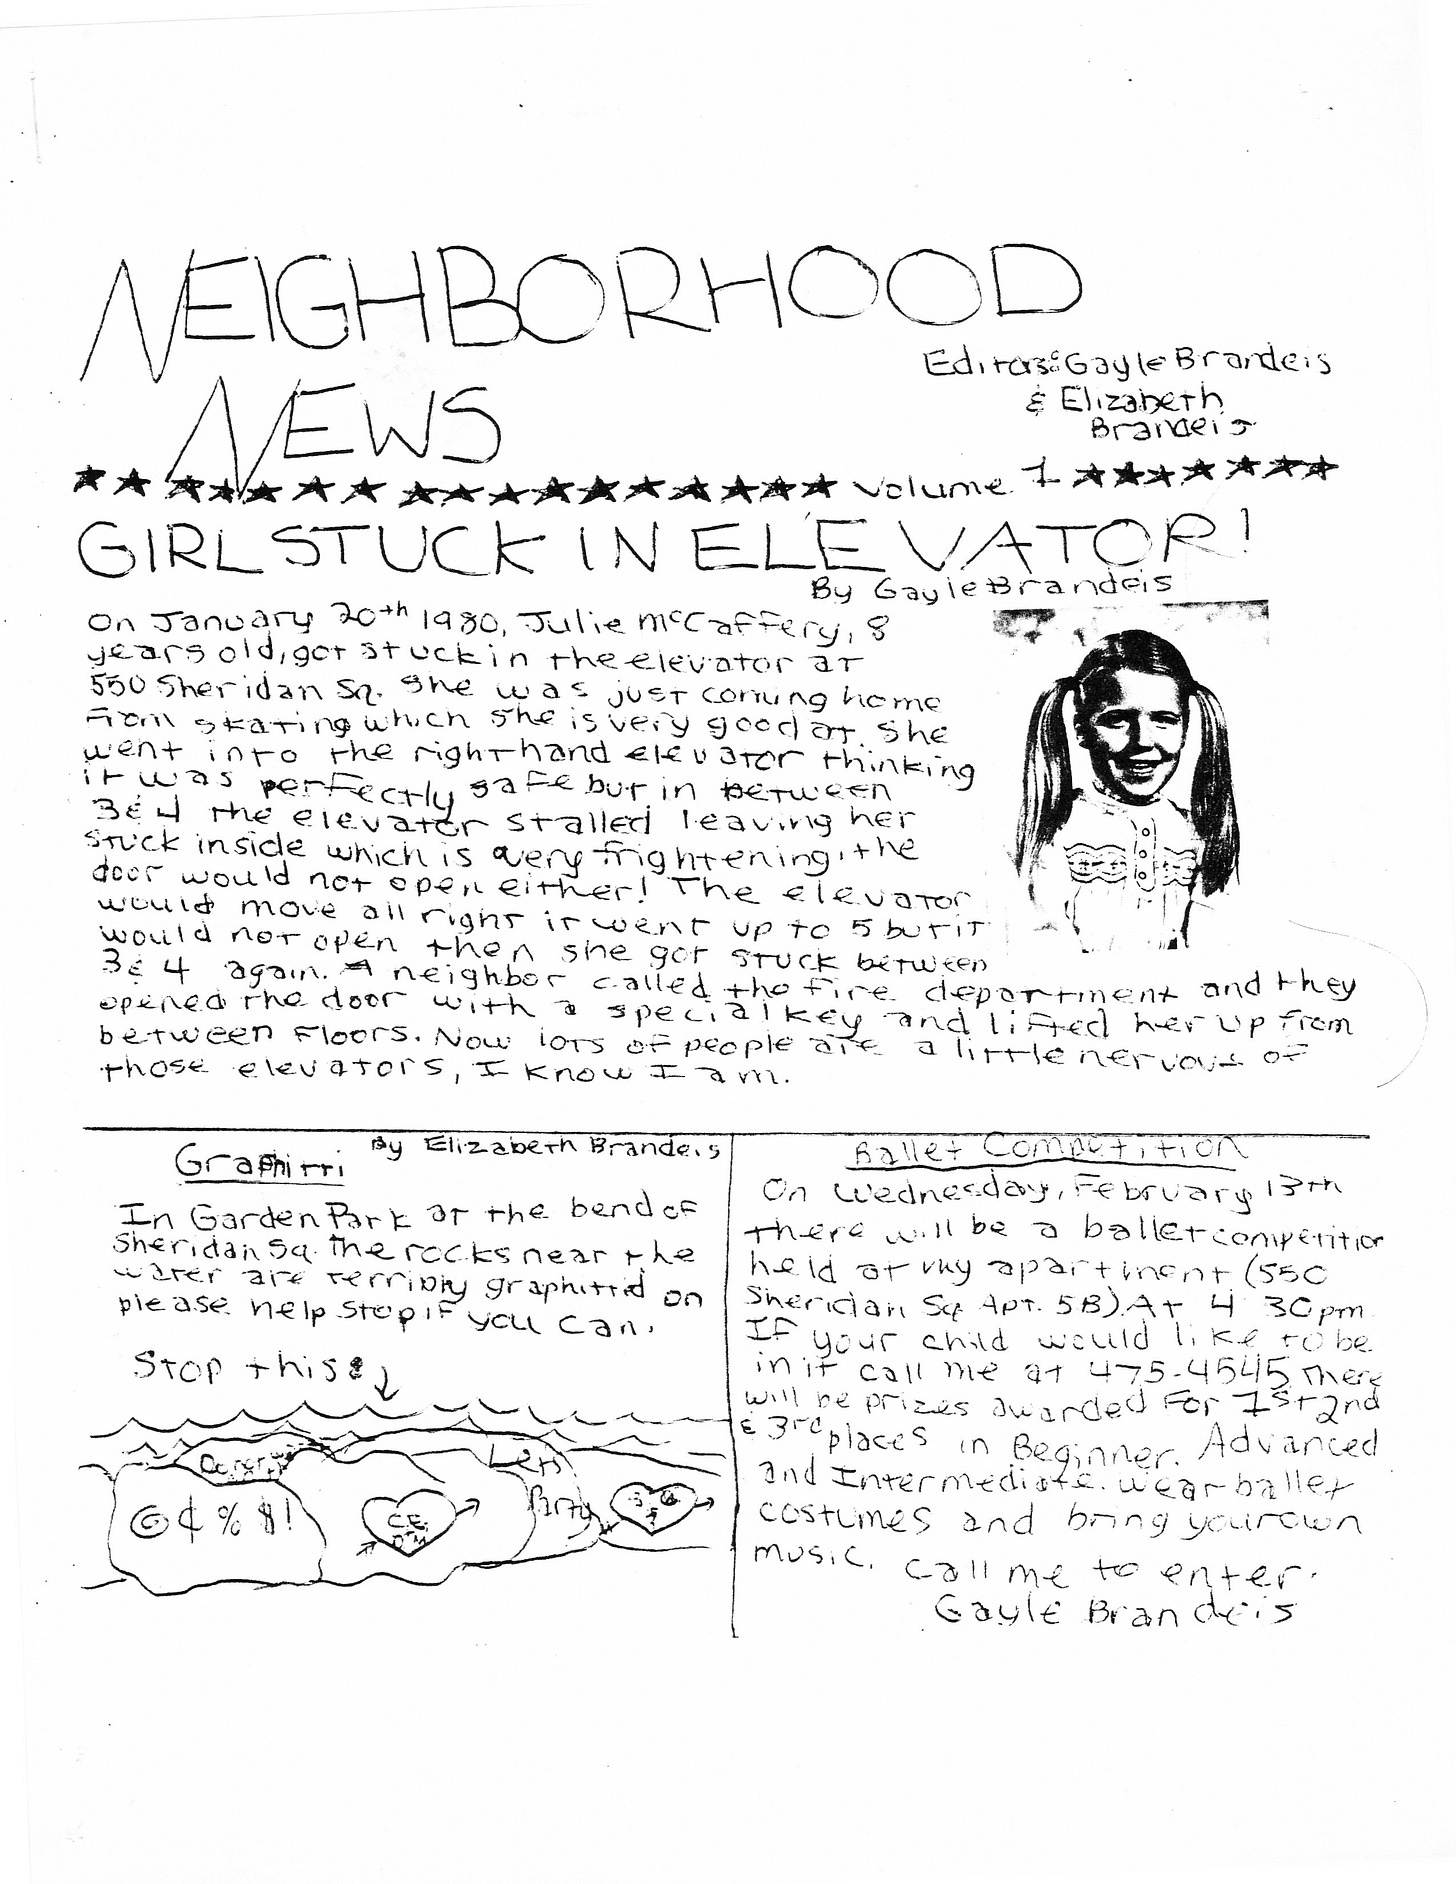 NEIGHBORHOOD
NEWS
Editors: Gayle Brandeis
& Elizabeth
Brandeis
Volume 1
GIRL STUCK IN ELEVATOR!
By Gayle Brandeis
On January 20th 1980, Julie McCaffery, 8
years old, got stuck in the elevator at
550 Sheridan Sq. She was just coming home
from skating which she is very good at. She
went into the right hand elevator thinking
it was perfectly safe but in between
3 & 4 the elevator stalled leaving her
stuck inside which is very frightening, the
door would not open either! The elevator
would move all right it went up to 5 but it
would not open then she got stuck between
3 & 4 again. A neighbor called the fire department and they
opened the door with a special key and lifted her up from
between floors. Now lots of people are a little nervous of
those elevators, I know I am.
Graphitti
By Elizabeth Brandeis
In Garden Park at the bend of
Sheridan Sq. The rocks near the
water are terribly graphittid on
please help stop if you can.
Stop this:
@¢%$!
C.E.
Lets
Party
Ballet Competition
On Wednesday, February 13th
there will be a ballet competition
held at my apartment (550
Sheridan Sq Apt. 5B). At 4 30pm
If your child would like to be
in it call me at 475-4545 There
will be prizes awarded For 1st 2nd
& 3rd places in Beginner. Advanced
and Intermediate. Wear ballet
costumes and bring your own
music. Call me to enter.
Gayle Brandeis